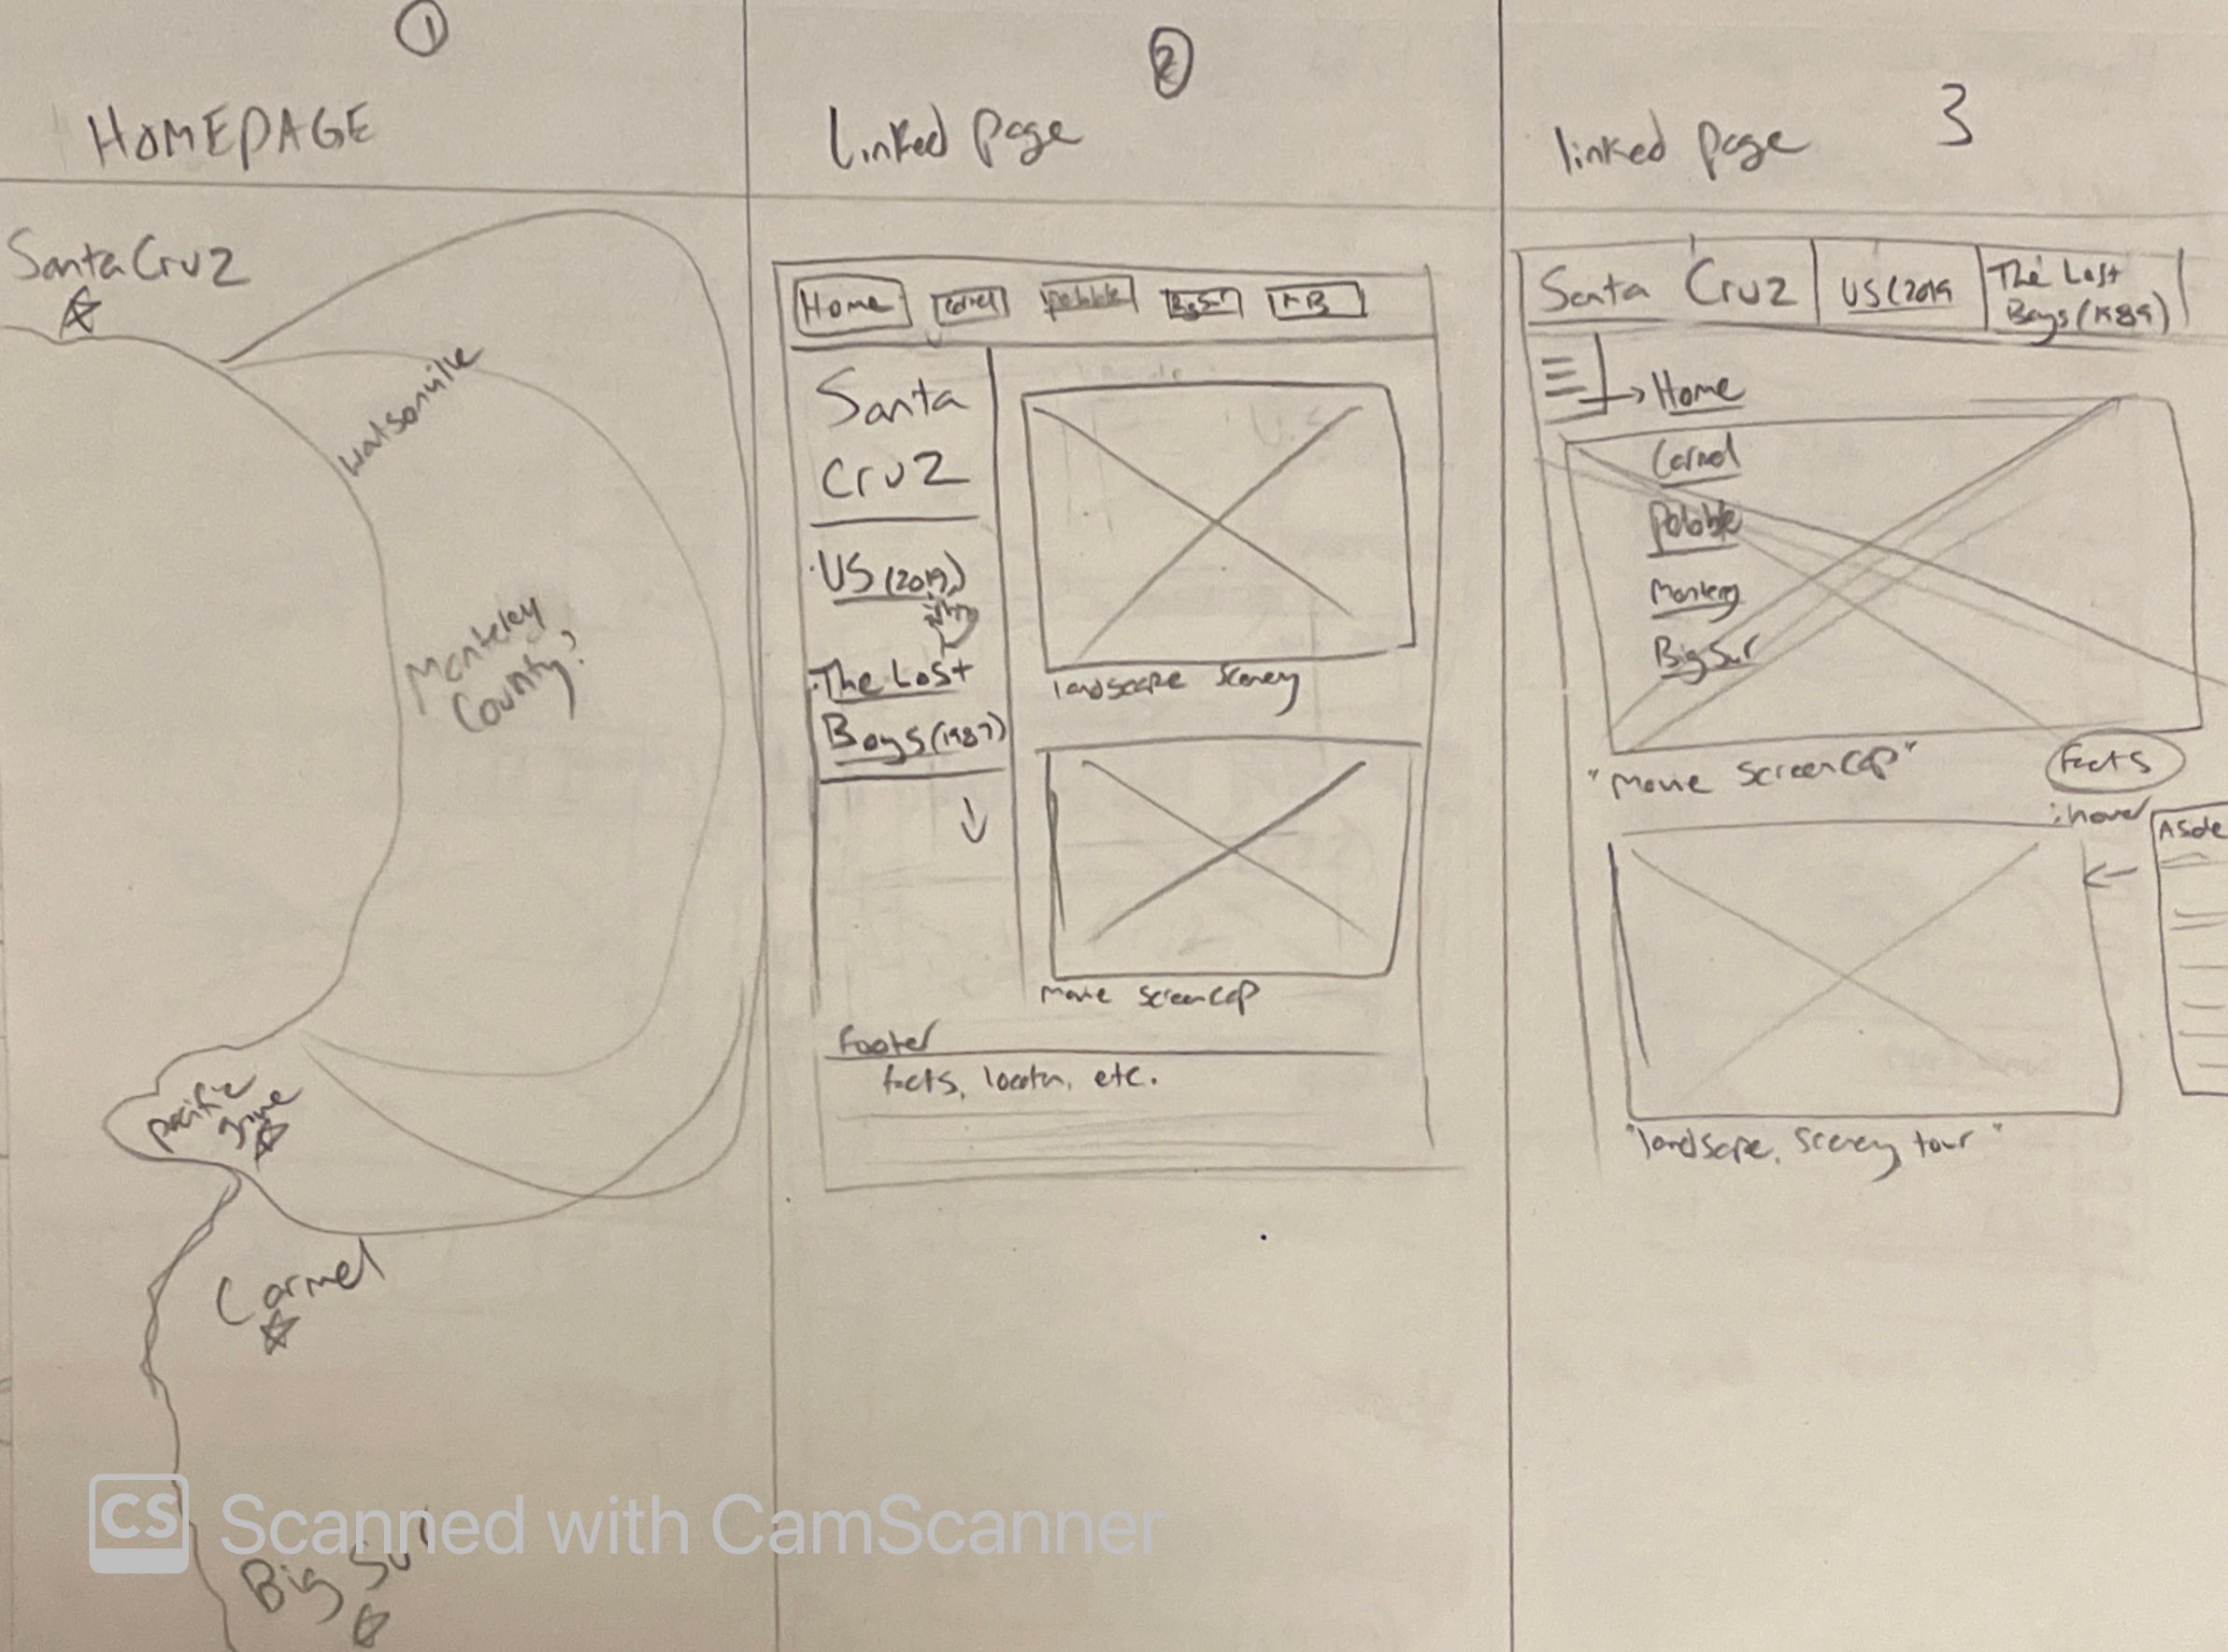 1
HOMEPAGE
Santa Cruz
Watsonville
Monterey
County?
pacific
grove
Carmel
Big Sur
2
Linked Page
Home
Carmel
Pebble
Big Sur
Santa
Cruz
US (2019)
The Lost
Boys (1987)
landscape scenery
movie screencap
footer
facts, locatn, etc.
3
linked page
Santa Cruz
US (2019
The Lost
Boys (1989)
Home
Carmel
Pebble
Monterey
Big Sur
"movie screencap"
facts
:hover
Aside
"landscape, scenery tour"
CS Scanned with CamScanner